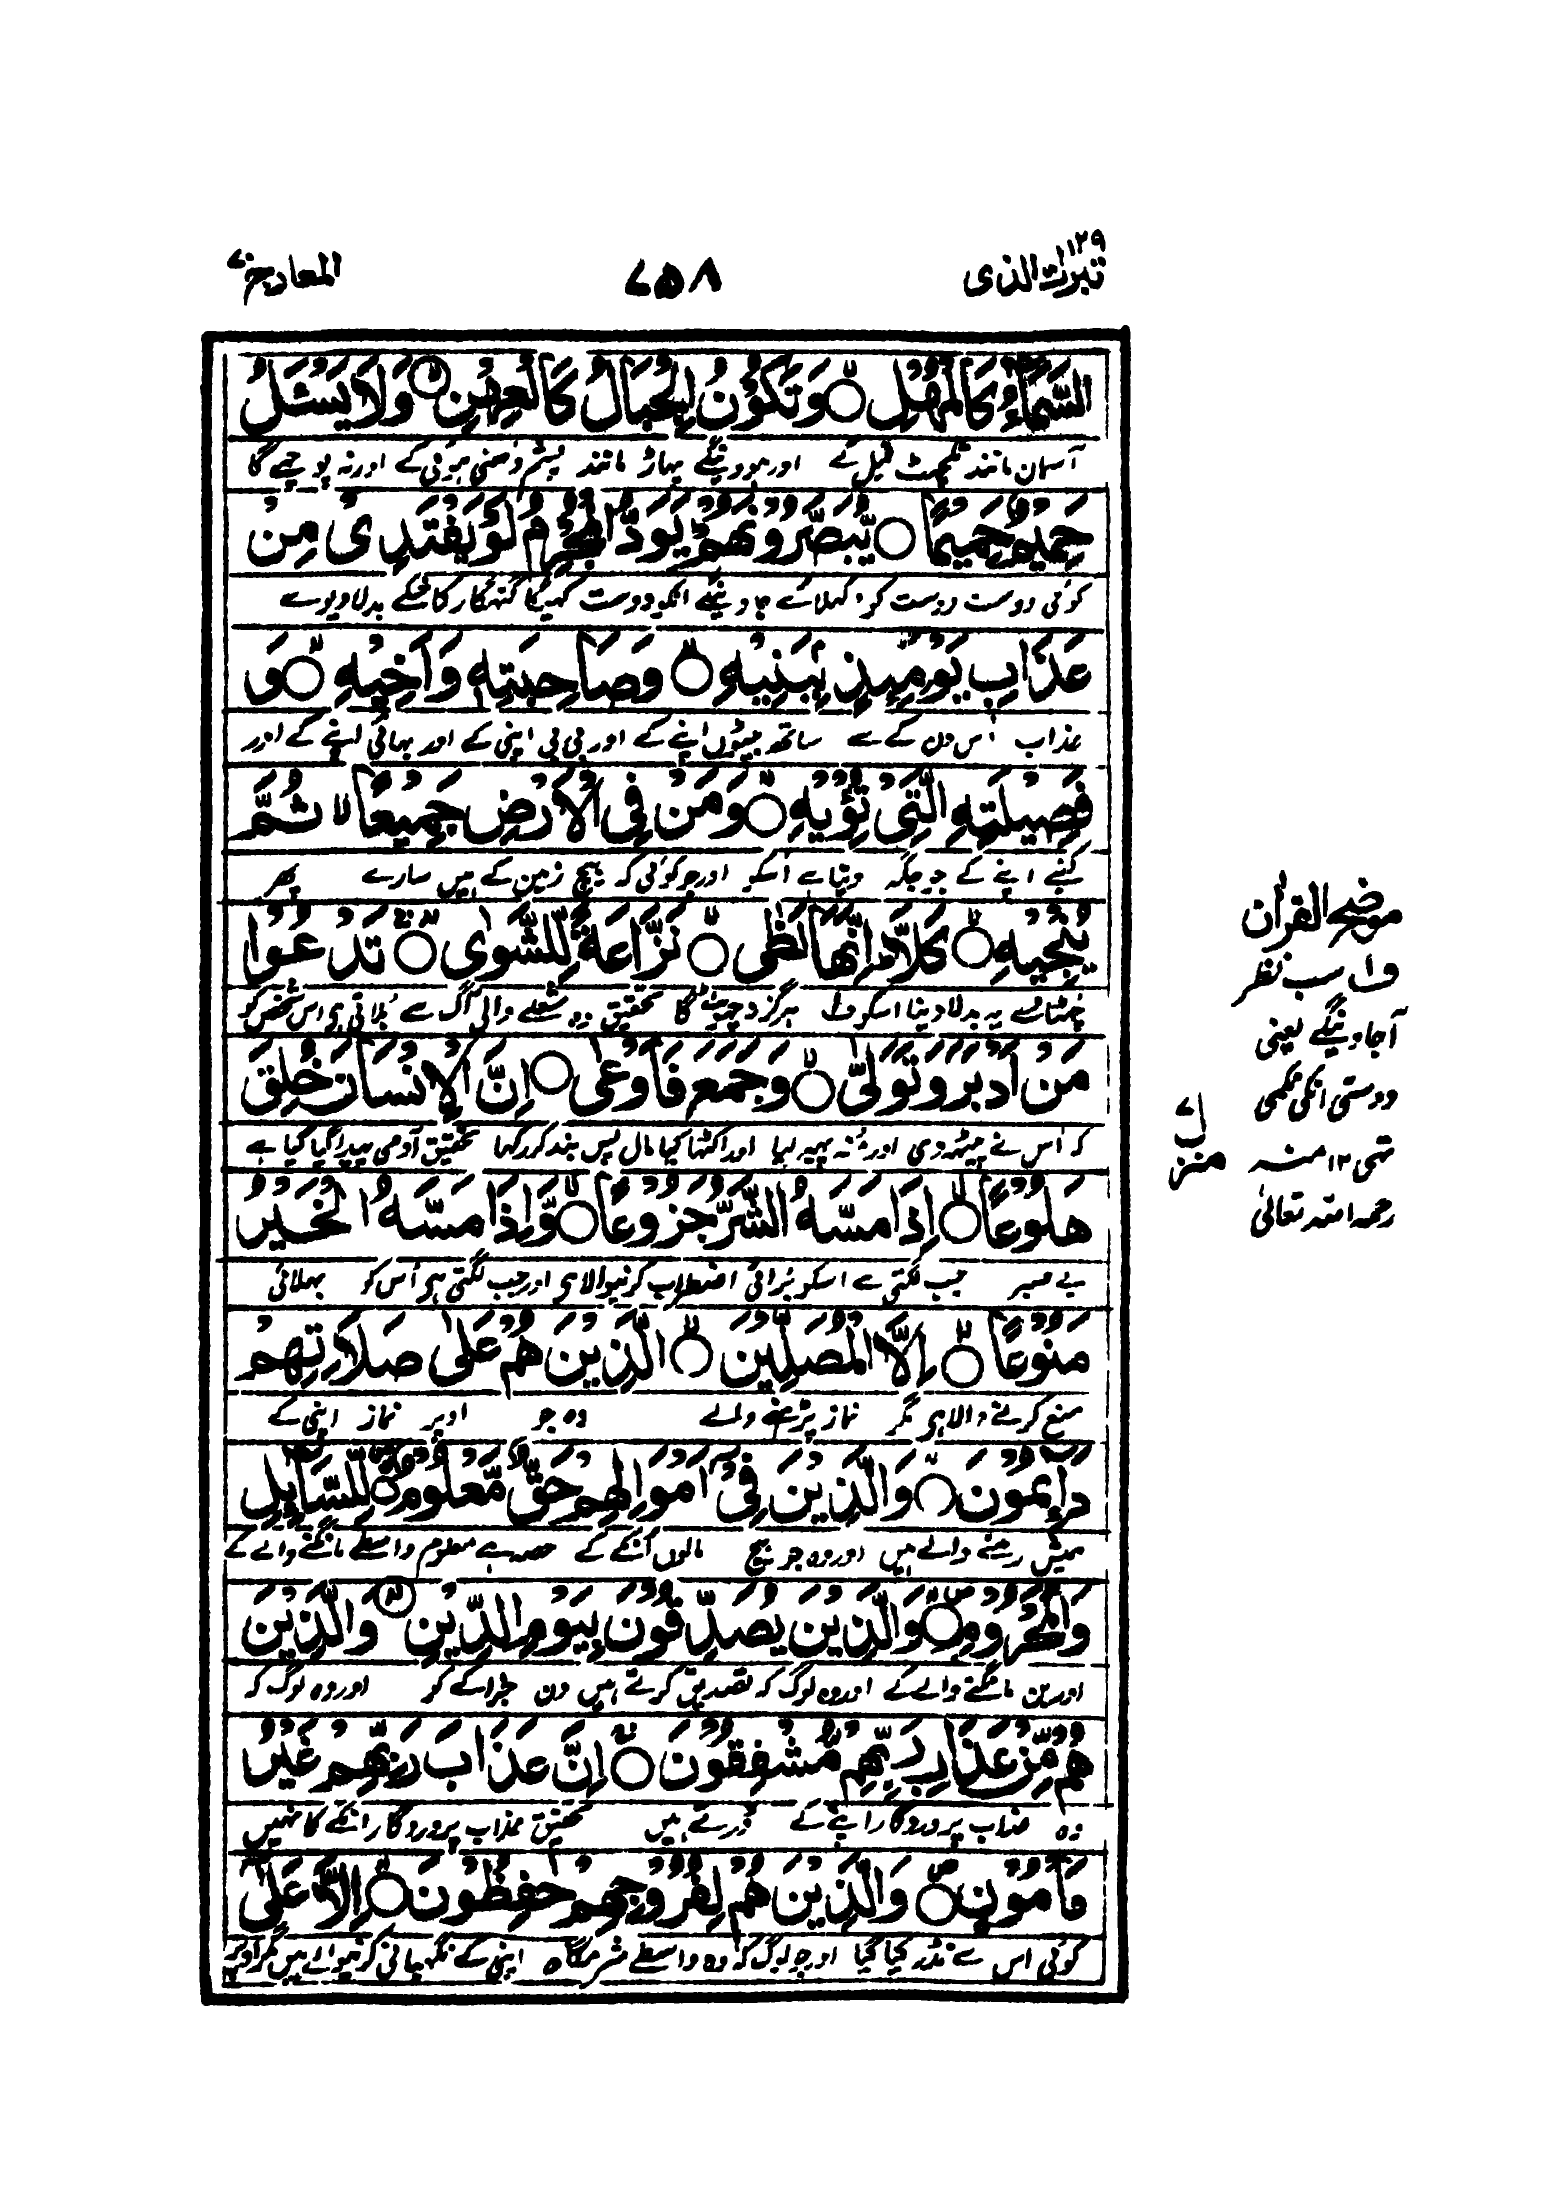 تبٰرک الذی ٢٩
٧٥٨
المعارج ٧٠
السَّمَآءُ كَالْمُهْلِ ۙ وَتَكُوْنُ الْجِبَالُ كَالْعِهْنِ ۙ وَلَا يَسْـَٔلُ
آسمان مانند تلچھٹ تیل کے اور ہووینگے پہاڑ مانند پشم دُھنی ہوئی کے اور نہ پوچھے گا
حَمِيْمٌ حَمِيْمًا ۙ يُّبَصَّرُوْنَهُمْ ؕ يَوَدُّ الْمُجْرِمُ لَوْ يَفْتَدِىْ مِنْ
کوئی دوست دوست کو دکھلائے جاوینگے انکو دوست کہیگا گنہگار کاشکے بدلا دیوے
عَذَابِ يَوْمِئِذٍۭ بِبَنِيْهِ ۙ وَصَاحِبَتِهٖ وَاَخِيْهِ ۙ وَ
عذاب اُس دن کے سے ساتھ بیٹوں اپنے کے اور بی بی اپنی کے اور بھائی اپنے کے اور
فَصِيْلَتِهِ الَّتِىْ تُـْٔوِيْهِ ۙ وَمَنْ فِى الْاَرْضِ جَمِيْعًا ۙ ثُمَّ
کنبے اپنے کے جو جگہ دیتا ہے اُسکو اور جو کوئی کہ بیچ زمین کے ہیں سارے پھر
يُنْجِيْهِ ۙ كَلَّا ؕ اِنَّهَا لَظٰى ۙ نَزَّاعَةً لِّلشَّوٰى ۚ تَدْعُوْا
چھٹا دے یہ بدلا دینا اسکو ف۱ ہرگز نہ چھوٹے گا تحقیق وہ شعلے والی آگ ہے بُلاتی ہی اس شخص کو
مَنْ اَدْبَرَ وَتَوَلّٰى ۙ وَجَمَعَ فَاَوْعٰى اِنَّ الْاِنْسَانَ خُلِقَ
کہ اُس نے پیٹھ دی اور مُنہ پھیر لیا اور اکٹھا کیا مال پس بند کر رکھا تحقیق آدمی پیدا کیا گیا ہے
هَلُوْعًا ۙ اِذَا مَسَّهُ الشَّرُّ جَزُوْعًا ۙ وَّاِذَا مَسَّهُ الْخَيْرُ
بے صبر جب لگتی ہے اسکو بُرائی اضطراب کرنیوالا ہی اور جب لگتی ہی اُس کو بھلائی
مَنُوْعًا ۙ اِلَّا الْمُصَلِّيْنَ ۙ الَّذِيْنَ هُمْ عَلٰى صَلَاتِهِمْ
منع کرنے والا ہی مگر نماز پڑھنے والے وہ جو اوپر نماز اپنی کے
دَآئِمُوْنَ ۙ وَالَّذِيْنَ فِىْٓ اَمْوَالِهِمْ حَقٌّ مَّعْلُوْمٌ ۙ لِّلسَّآئِلِ
ہمیش رہنے والے ہیں اور وہ جو بیچ مالوں اُنکے کے حصہ ہے معلوم واسطے مانگنے والے کے
وَالْمَحْرُوْمِ ۙ وَالَّذِيْنَ يُصَدِّقُوْنَ بِيَوْمِ الدِّيْنِ ۙ وَالَّذِيْنَ
اور بن مانگنے والے کے اور وہ لوگ کہ تصدیق کرتے ہیں دن جزا کے کو اور وہ لوگ کہ
هُمْ مِّنْ عَذَابِ رَبِّهِمْ مُّشْفِقُوْنَ ۚ اِنَّ عَذَابَ رَبِّهِمْ غَيْرُ
وہ عذاب پروردگار اپنے کے ڈرتے ہیں تحقیق عذاب پروردگار انکے کا نہیں
مَاْمُوْنٍ وَالَّذِيْنَ هُمْ لِفُرُوْجِهِمْ حٰفِظُوْنَ ۙ اِلَّا عَلٰٓى
کوئی اس سے نڈر کیا گیا اور جو لوگ کہ وہ واسطے شرمگاہ اپنی کے نگہبانی کرنیوالے ہیں مگر اوپر
موضح القرآن
ف۱ سب نظر
آجاوینگے یعنی
دوستی انکی نکمی
تھی ۱۲ منہ
رحمہ اللہ تعالیٰ
منزل ٧